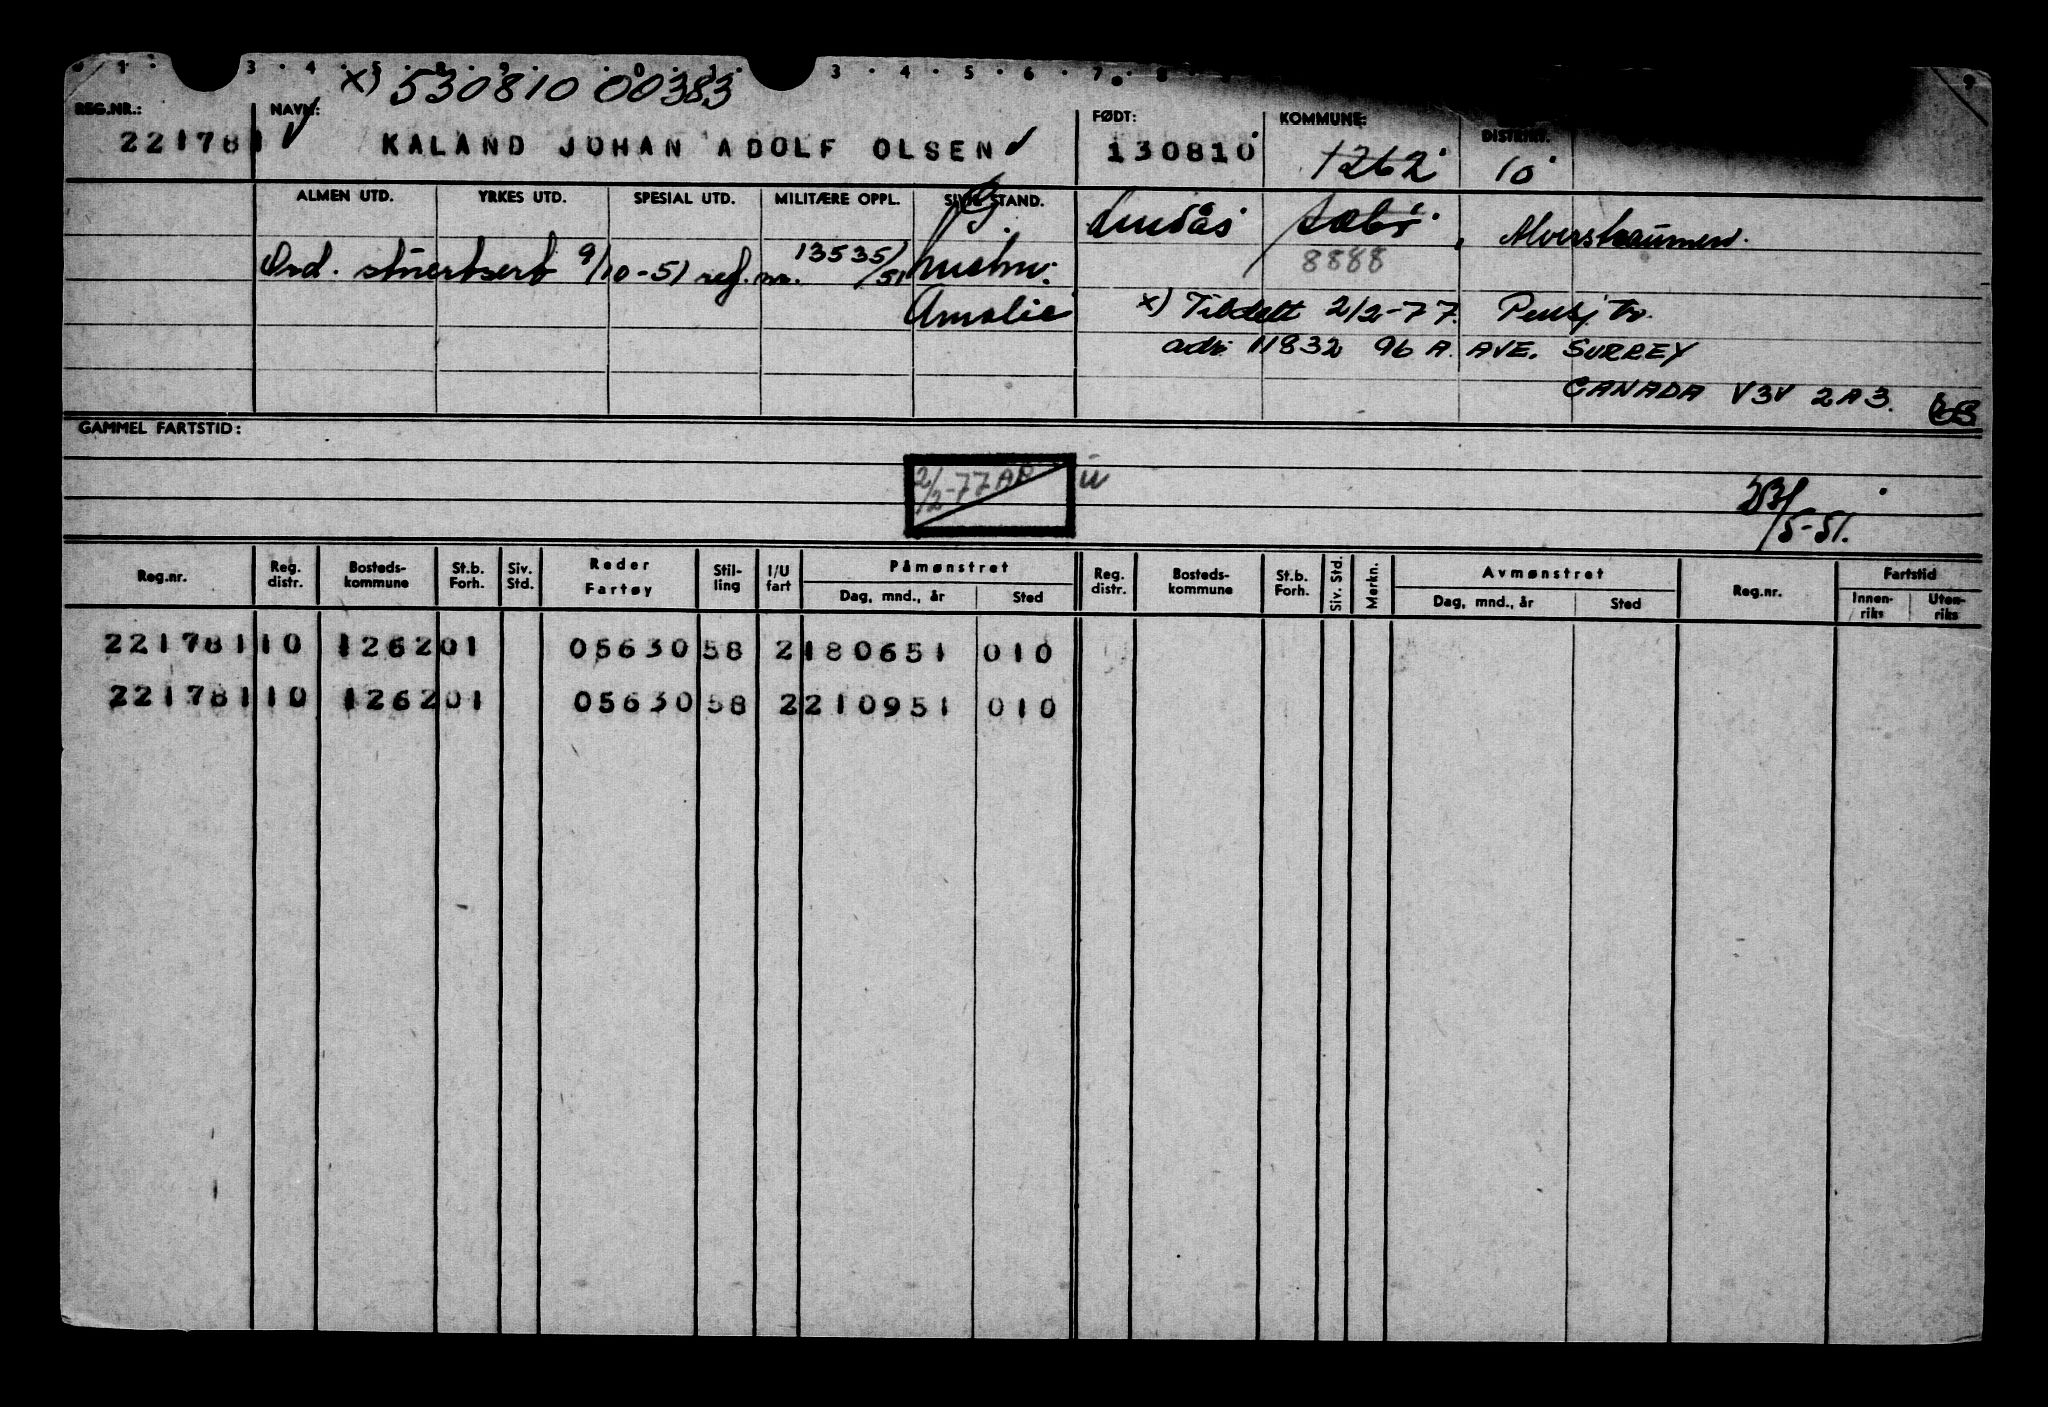 x) 530810 00383
REG.NR.: NAVN: FØDT: KOMMUNE: DISTRIKT:
221781 KALAND JOHAN ADOLF OLSEN 130810 1262 10
ALMEN UTD. YRKES UTD. SPESIAL UTD. MILITÆRE OPPL. SIVIL STAND.
g. Lindås Sæbø, Alverstraumen.
Ord. stuertsert 9/10-51 ref. nr. 13535/51 8888
Amalie x) Tildelt 2/2-77. Pensj. tr.
adr. 11832 96 A. AVE. SURREY
CANADA V3V 2A3.
GAMMEL FARTSTID:
2/2-77 AR
/5-51.
Reg.nr. Reg. distr. Bosteds-kommune St.b. Forh. Siv. Std. Reder Fartøy Stil-ling I/U fart Påmønstret Dag, mnd., år Sted Reg. distr. Bosteds-kommune St.b. Forh. Siv. Std. Merkn. Avmønstret Dag, mnd., år Sted Reg.nr. Fartstid Innen-riks Uten-riks
221781 10 1262 01 05630 58 2 180651 010
221781 10 1262 01 05630 58 2 210951 010